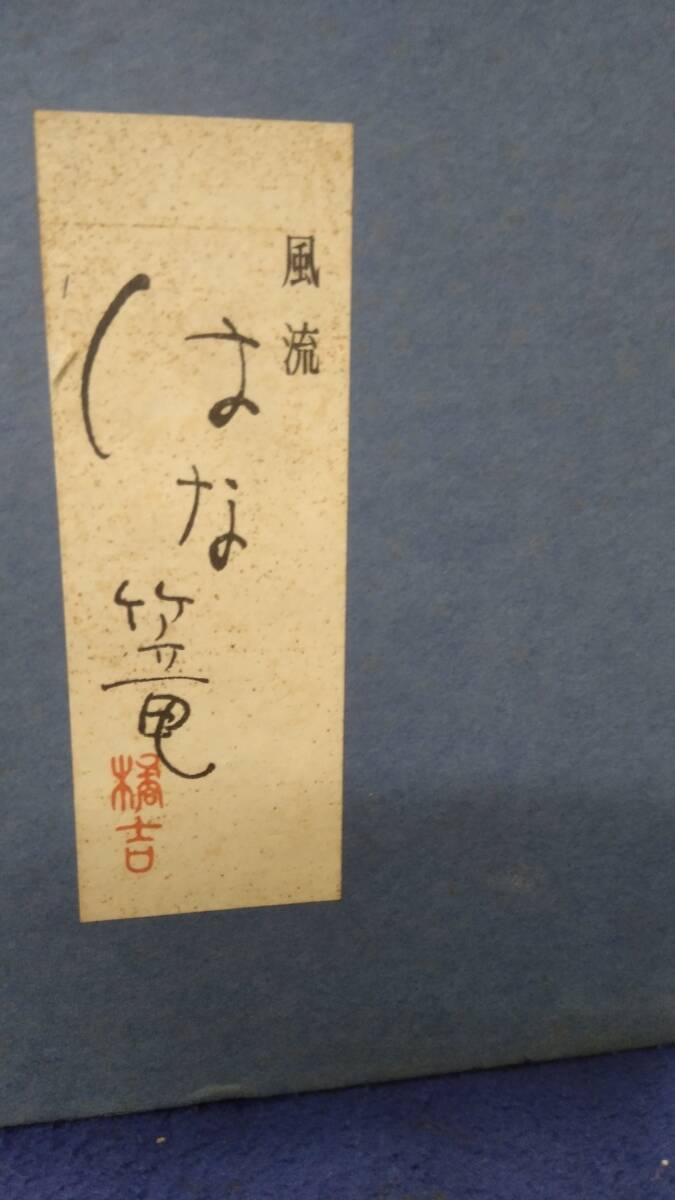 風流
はな篭
橘吉